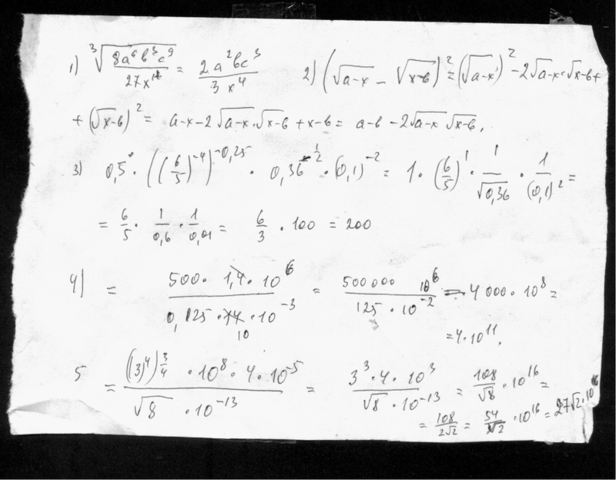 1) ∛(8a⁶b³c⁹ / 27x¹²) = 2a²bc³ / 3x⁴ 2) (√(a-x) - √(x-b))² = (√(a-x))² - 2√(a-x)·√(x-b) +
+ (√(x-b))² = a-x-2√(a-x)·√(x-b) + x-b = a-b-2√(a-x)√(x-b).
3) 0,5⁰ · ((6/5)⁻⁴)^(-0,25) · 0,36^(-1/2) · (0,1)⁻² = 1 · (6/5)¹ · 1/√0,36 · 1/(0,1)² =
= 6/5 · 1/0,6 · 1/0,01 = 6/3 · 100 = 200
4) = 500 · 1,4 · 10⁶ / 0,125 · 14 · 10⁻³ = 500000 10⁶ / 125 · 10⁻² = 4000 · 10⁸ =
10
= 4·10¹¹.
5 = ((3)⁴)^(3/4) · 10⁸ · 4 · 10⁻⁵ / √8 · 10⁻¹³ = 3³ · 4 · 10³ / √8 · 10⁻¹³ = 108/√8 · 10¹⁶ =
= 108/2√2 = 54/√2 · 10¹⁶ = 27√2 · 10¹⁶